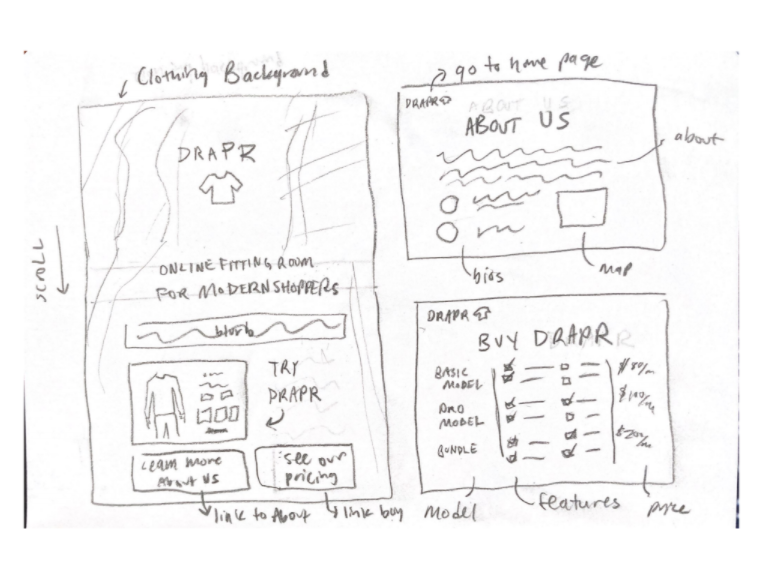 Clothing Background
DRAPR
SCROLL
ONLINE FITTING ROOM
FOR MODERN SHOPPERS
blurb
TRY
DRAPR
Learn more
About US
see our
pricing
link to About
link buy
go to home page
DRAPR
ABOUT US
ABOUT US
about
bios
map
DRAPR
BUY DRAPR
BASIC
MODEL
$80/m
PRO
MODEL
$100/m
BUNDLE
$200/m
Model
features
price